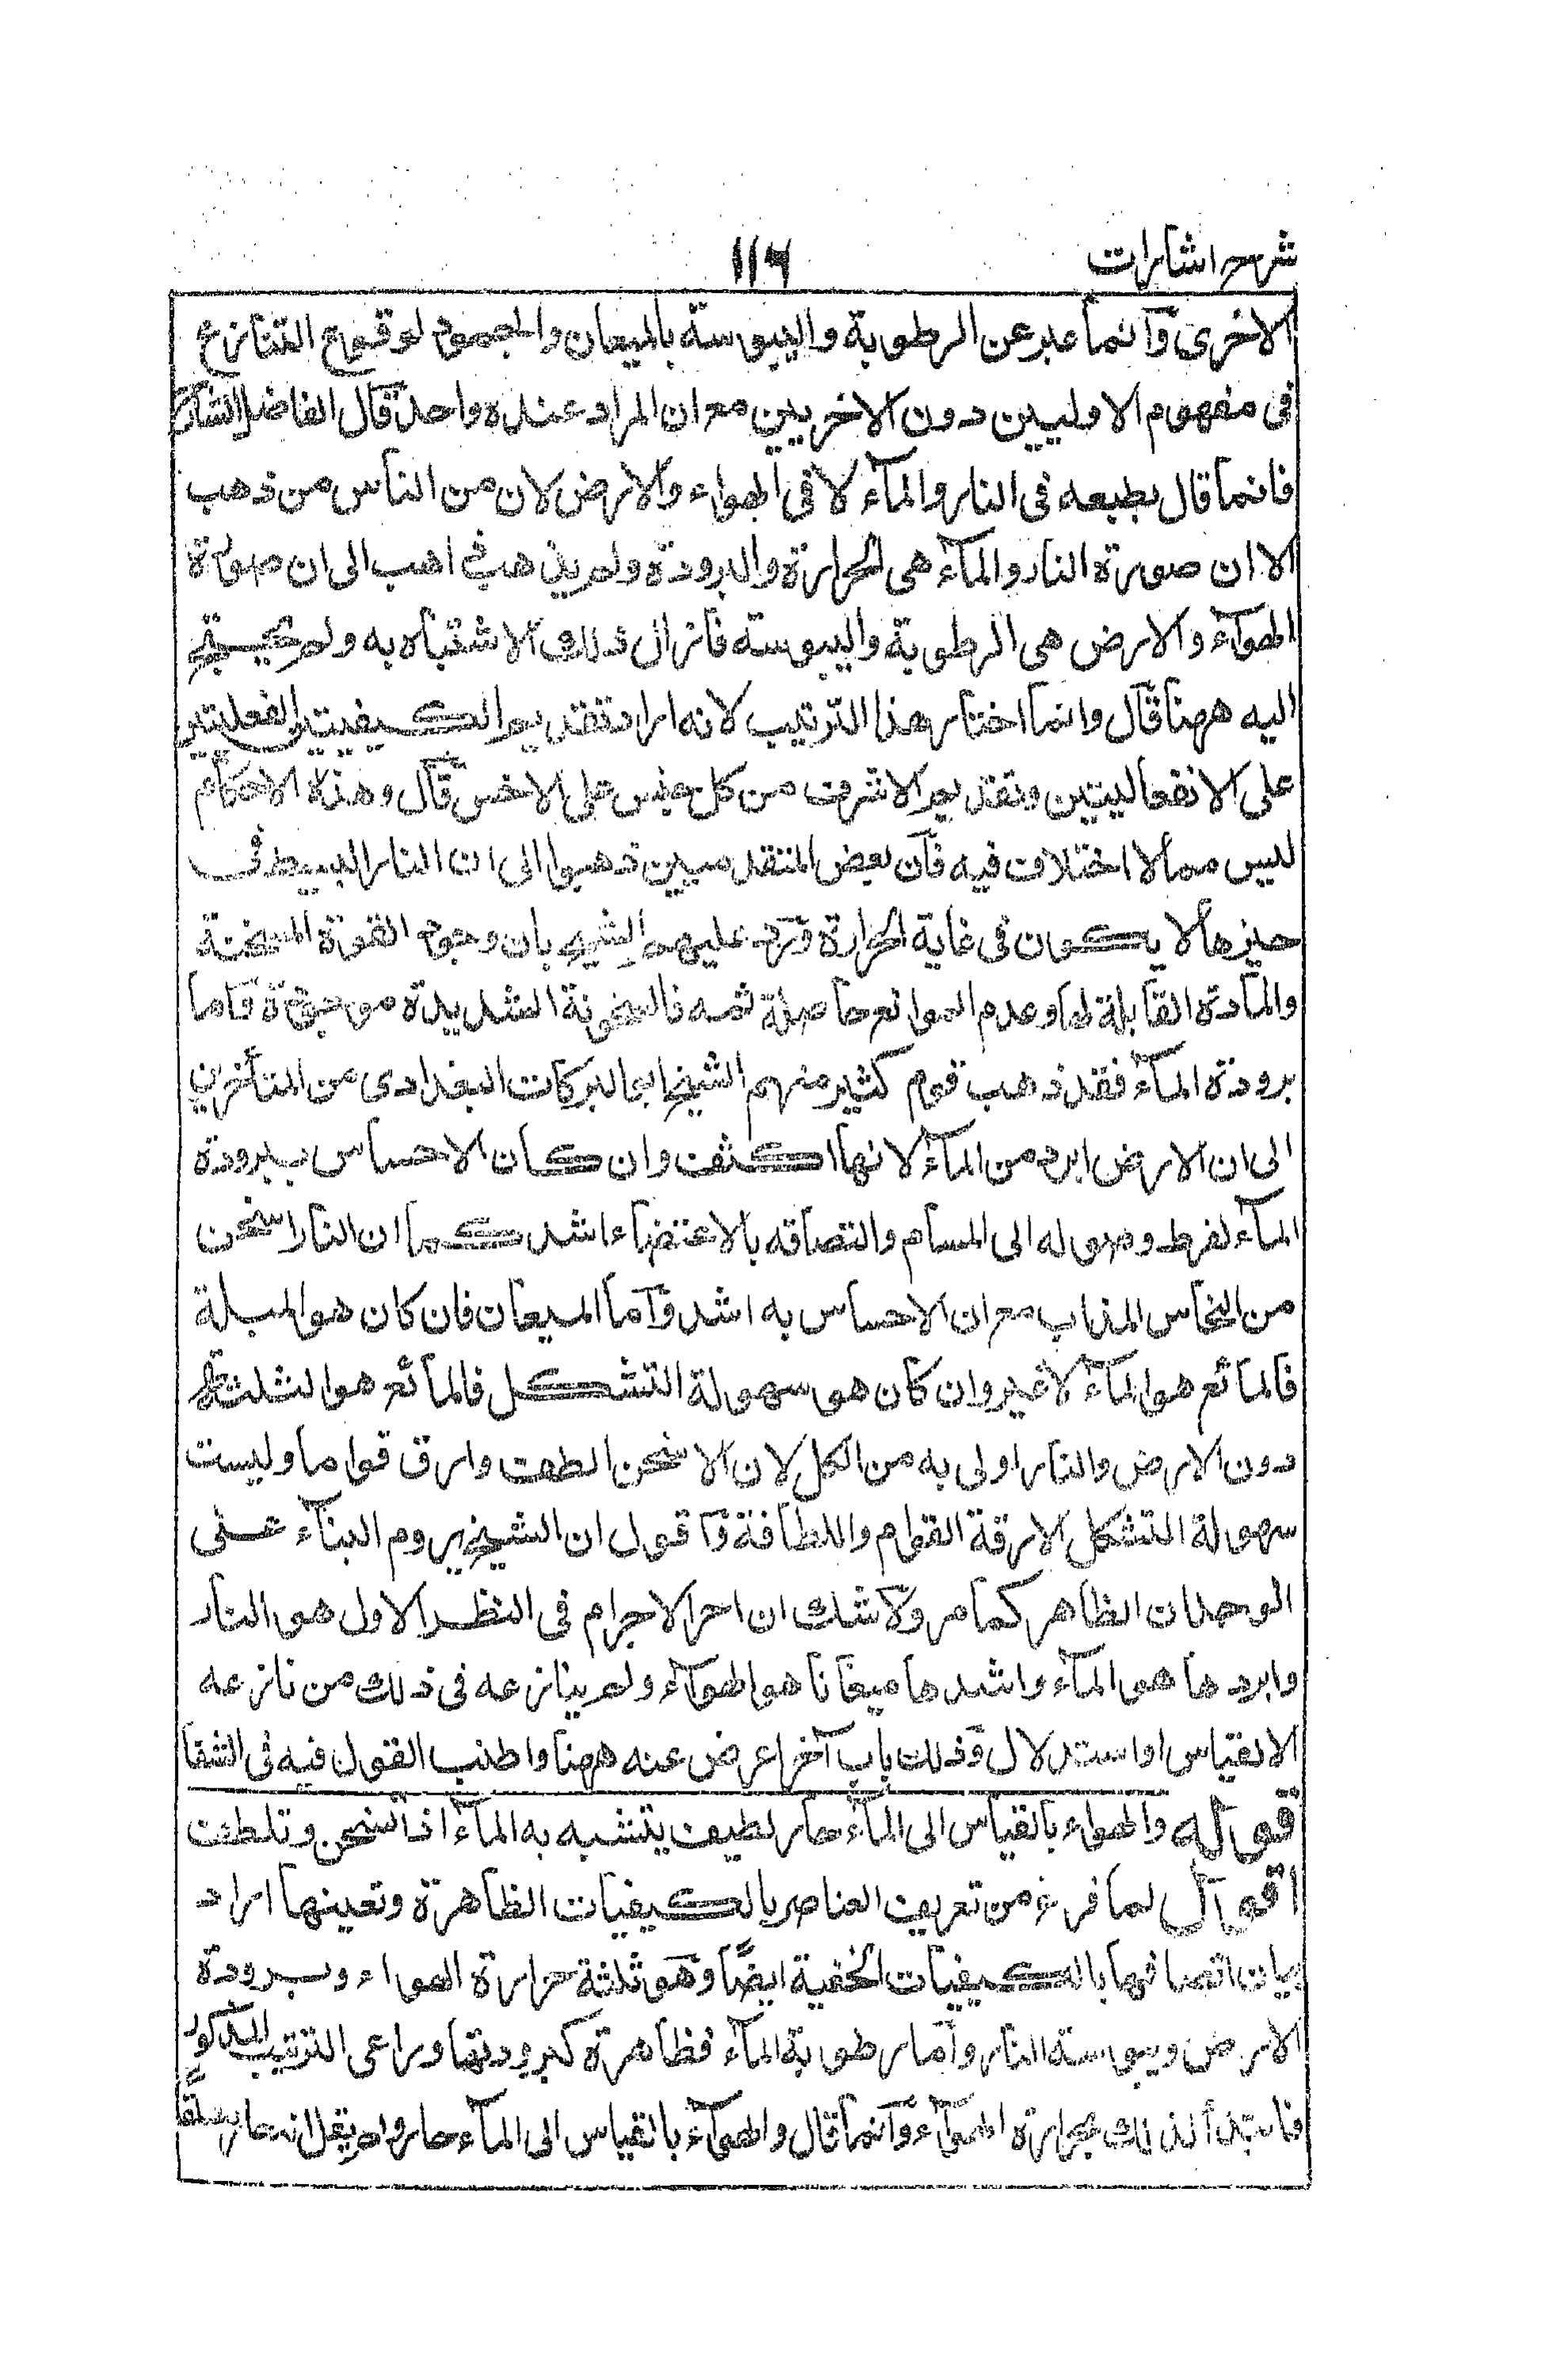 شرح اشارات
١١٦
الاخرى وانما عبر عن الرطوبة واليبوسة بالميعان والجمود لوقوع التنازع
فى مفهوم الاوليين دون الاخريين مع ان المراد عنده واحد قال الفاضل الشارح
فانما قال بطبعه فى النار والمآء لا فى الهواء والارض لان من الناس من ذهب
الا ان صورة النار والمآء هى الحرارة والبرودة ولم يذهب ذاهب الى ان صورة
الهوآء والارض هى الرطوبة واليبوسة فازال ذلك الاشتباه به ولم يحتج
اليه ههنا قال وانما اختار هذا الترتيب لانه اراد تقديم الكيفيتين الفعليتين
على الانفعاليتين وتقديم الاشرف من كل جنس على الاخس قال وهذه الاحكام
ليس مما لا اختلاف فيه فان بعض المتقدمين ذهبوا الى ان النار البسيط فى
حيزها لا يكون فى غاية الحرارة ورد عليهم الشيخ بان وجود القوة المسخنة
والمادة القابلة لها وعدم الموانع حاصلة ثمه فالسخونة الشديدة موجودة فاما
برودة المآء فقد ذهب قوم كثير منهم الشيخ ابو البركات البغدادى من المتأخرين
الى ان الارض ابرد من المآء لانها اكثف وان كان الاحساس ببرودة
المآء لفرط وصوله الى المسام والتصاقه بالاعضاء اشد كما ان النار اسخن
من النحاس المذاب مع ان الاحساس به اشد واما الميعان فان كان هو البلة
فالمائع هو المآء لا غير وان كان هو سهولة التشكل فالمائع هو الثلثة
دون الارض والنار اولى به من الكل لان الاسخن الطف وارق قواما وليست
سهولة التشكل الا رقة القوام واللطافة واقول ان الشيخ يروم البنآء على
الوجدان الظاهر كما مر ولا شك ان احر الاجرام فى النظر الاول هو النار
وابردها هو المآء واشدها ميعانا هو الهوآء ولم ينازعه فى ذلك من نازعه
الا بقياس او استدلال وذلك باب آخر اعرض عنه ههنا واطنب القول فيه فى الشفا
قوله والهواء بالقياس الى المآء حار لطيف يتشبه به المآء اذا سخن وتلطف
اقول لما فرغ من تعريف العناصر بالكيفيات الظاهرة وتعينها اراد
بيان اتصافها بالكيفيات الخفية ايضًا وهو ثلثة حرارة الهواء وبرودة
الارض ويبوسة النار واما رطوبة المآء فظاهرة كبرودتها وراعى الترتيب المذكور
فابتدأ لذلك بحرارة الهوآء وانما قال والهوآء بالقياس الى المآء حار ولم يقل انه حار مطلقًا